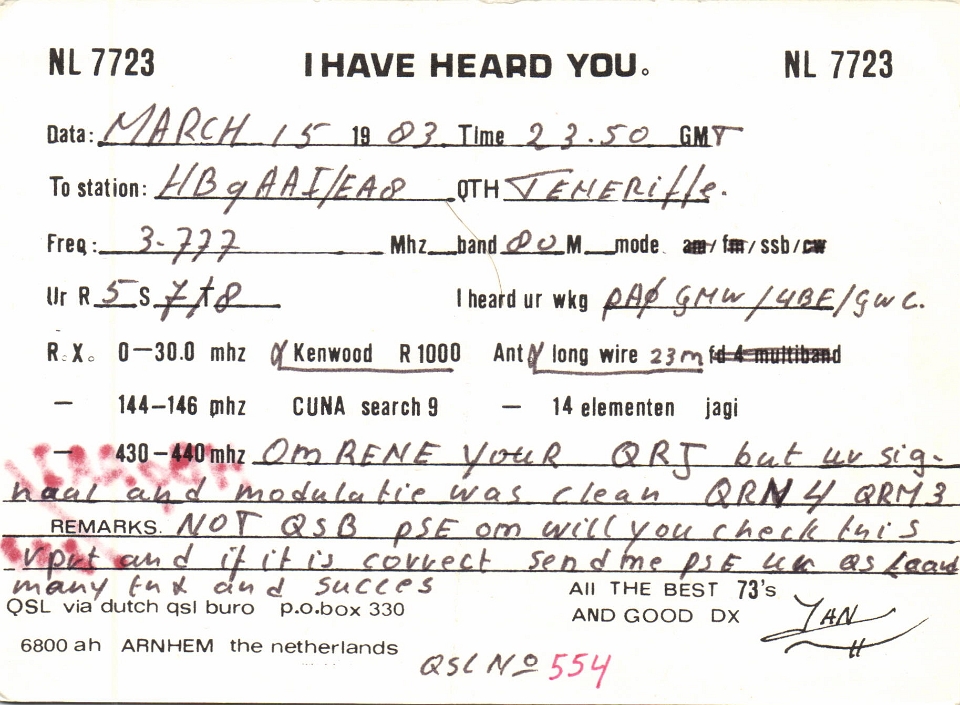 NL 7723 I HAVE HEARD YOU. NL 7723
Data: MARCH 15 19 83 Time 23.50 GMT
To station: HB9AAI/EA8 QTH TENERiffe.
Freq: 3-777 Mhz band 80 M mode am/ fm/ ssb/cw
Ur R 5 S 7/8 I heard ur wkg pAØ GMW/UBE/GWC.
R.X. 0–30.0 mhz Kenwood R 1000 Ant long wire 23m fd 4 multiband
– 144–146 mhz CUNA search 9 – 14 elementen jagi
– 430–440 mhz Om RENE YouR QRJ but ur sig-
naal and modulatie was clean QRN 4 QRM 3
REMARKS. NOT QSB pSE om will you check this
rprt and if it is correct send me pSE ur QSL card
many tnx and succes
QSL via dutch qsl buro p.o.box 330 All THE BEST 73's
AND GOOD DX JAN
6800 ah ARNHEM the netherlands
QSL No 554